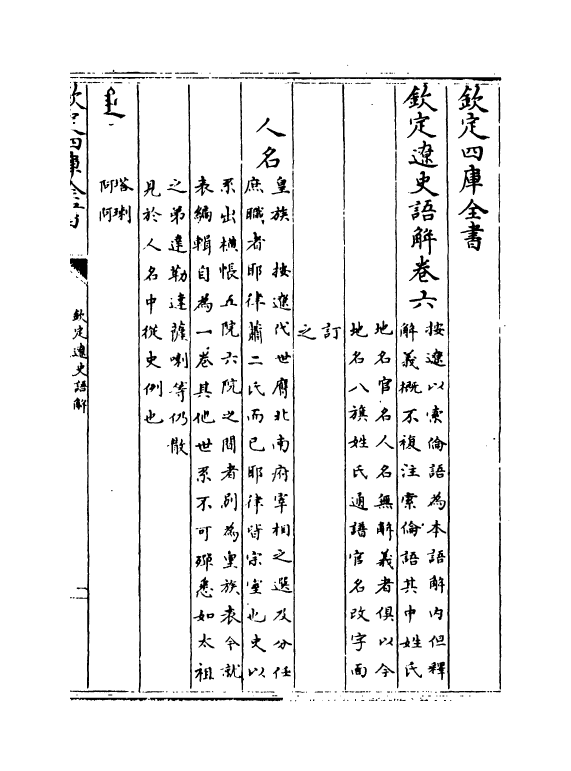 欽定四庫全書
欽定遼史語解卷六
按遼以索倫語為本語解內但釋
解義概不複注索倫語其中姓氏
地名官名人名無解義者俱以今
地名八旗姓氏通譜官名改字面
訂
之
人名
皇族 按遼代世膺北南府宰相之選及分任
庶職者耶律蕭二氏而已耶律皆宗室也史以
系出橫帳五院六院之間者別為皇族表今就
表編輯自為一卷其他世系不可殫悉如太祖
之弟達勒達薩喇等仍散
見於人名中從史例也
阿阿
欽定四庫全書
欽定遼史語解
二